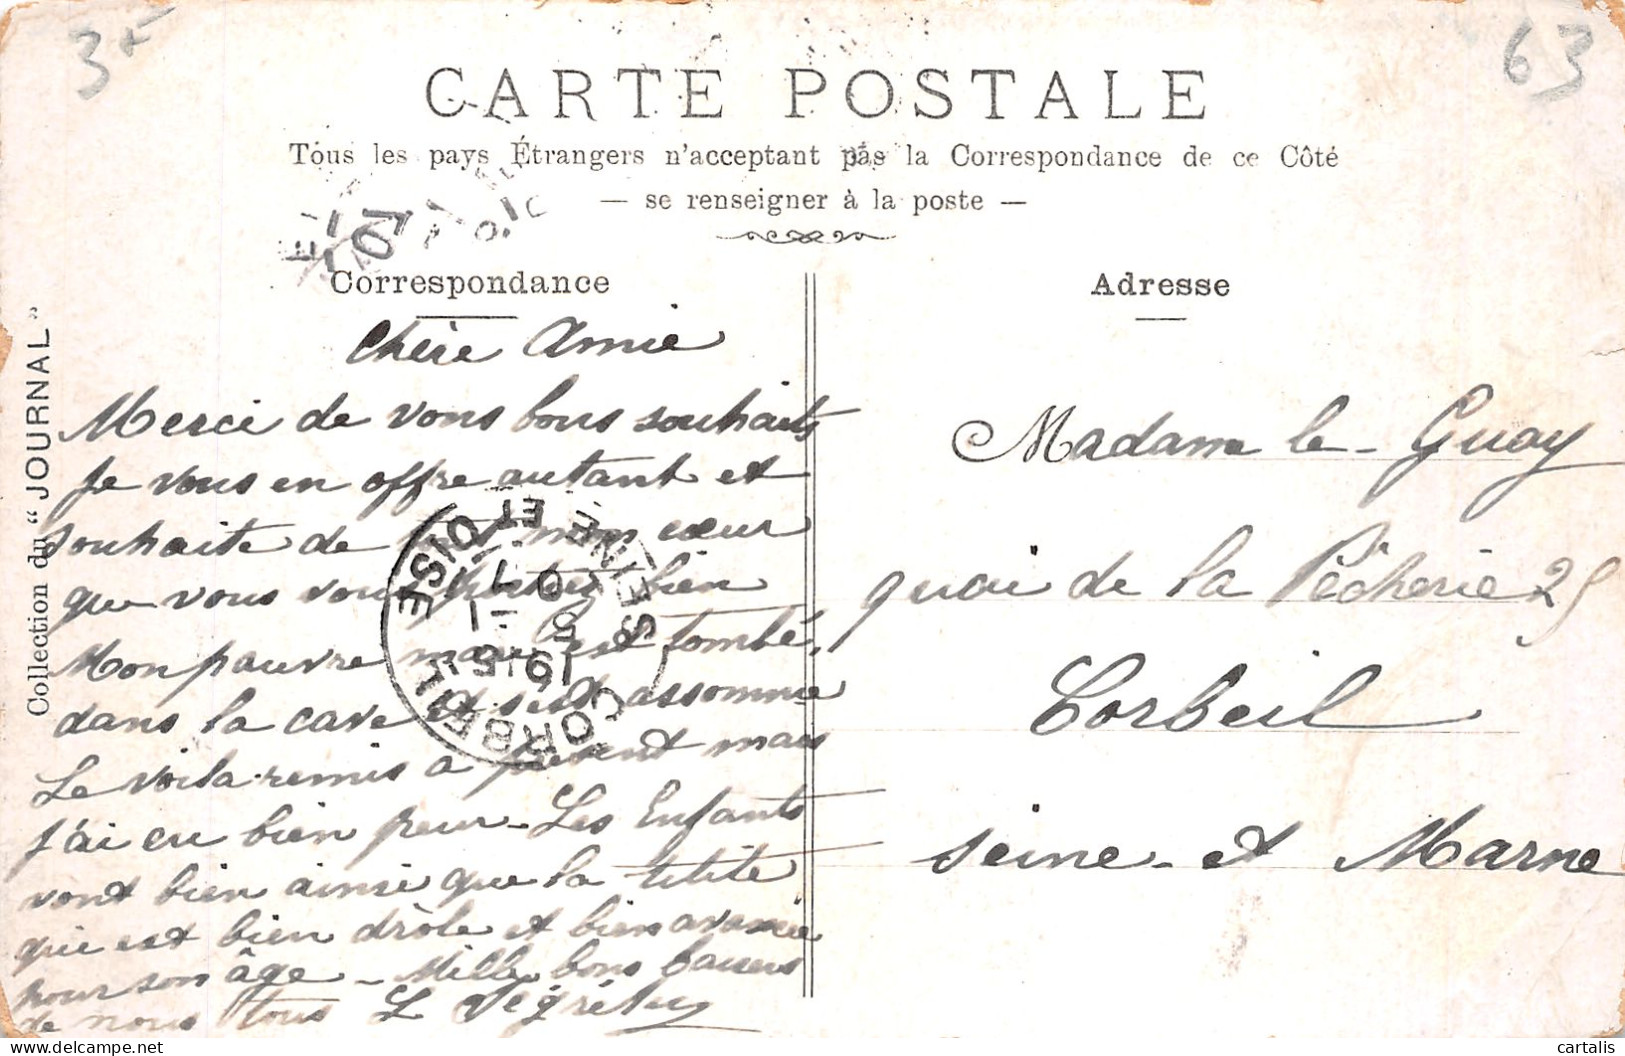 3 F
63
CARTE POSTALE
Tous les pays Étrangers n'acceptant pas la Correspondance de ce Côté
— se renseigner à la poste —
Correspondance
Adresse
Collection du "JOURNAL"
Chère Amie
Merci de vous bons souhaits
Je vous en offre autant et
souhaite de tout mon cœur
que vous vous portiez bien
Mon pauvre mari est tombé
dans la cave et s'est assommé
Le voila remis a présent mais
j'ai eu bien peur - Les Enfants
vont bien ainsi que la petite
qui est bien drôle et bien avancée
pour son âge - Mille bons baisers
de nous tous L
Madame le Guay
quai de la Pêcherie 25
Corbeil
Seine et Marne
CORBEIL
SEINE ET OISE
07
cartalis